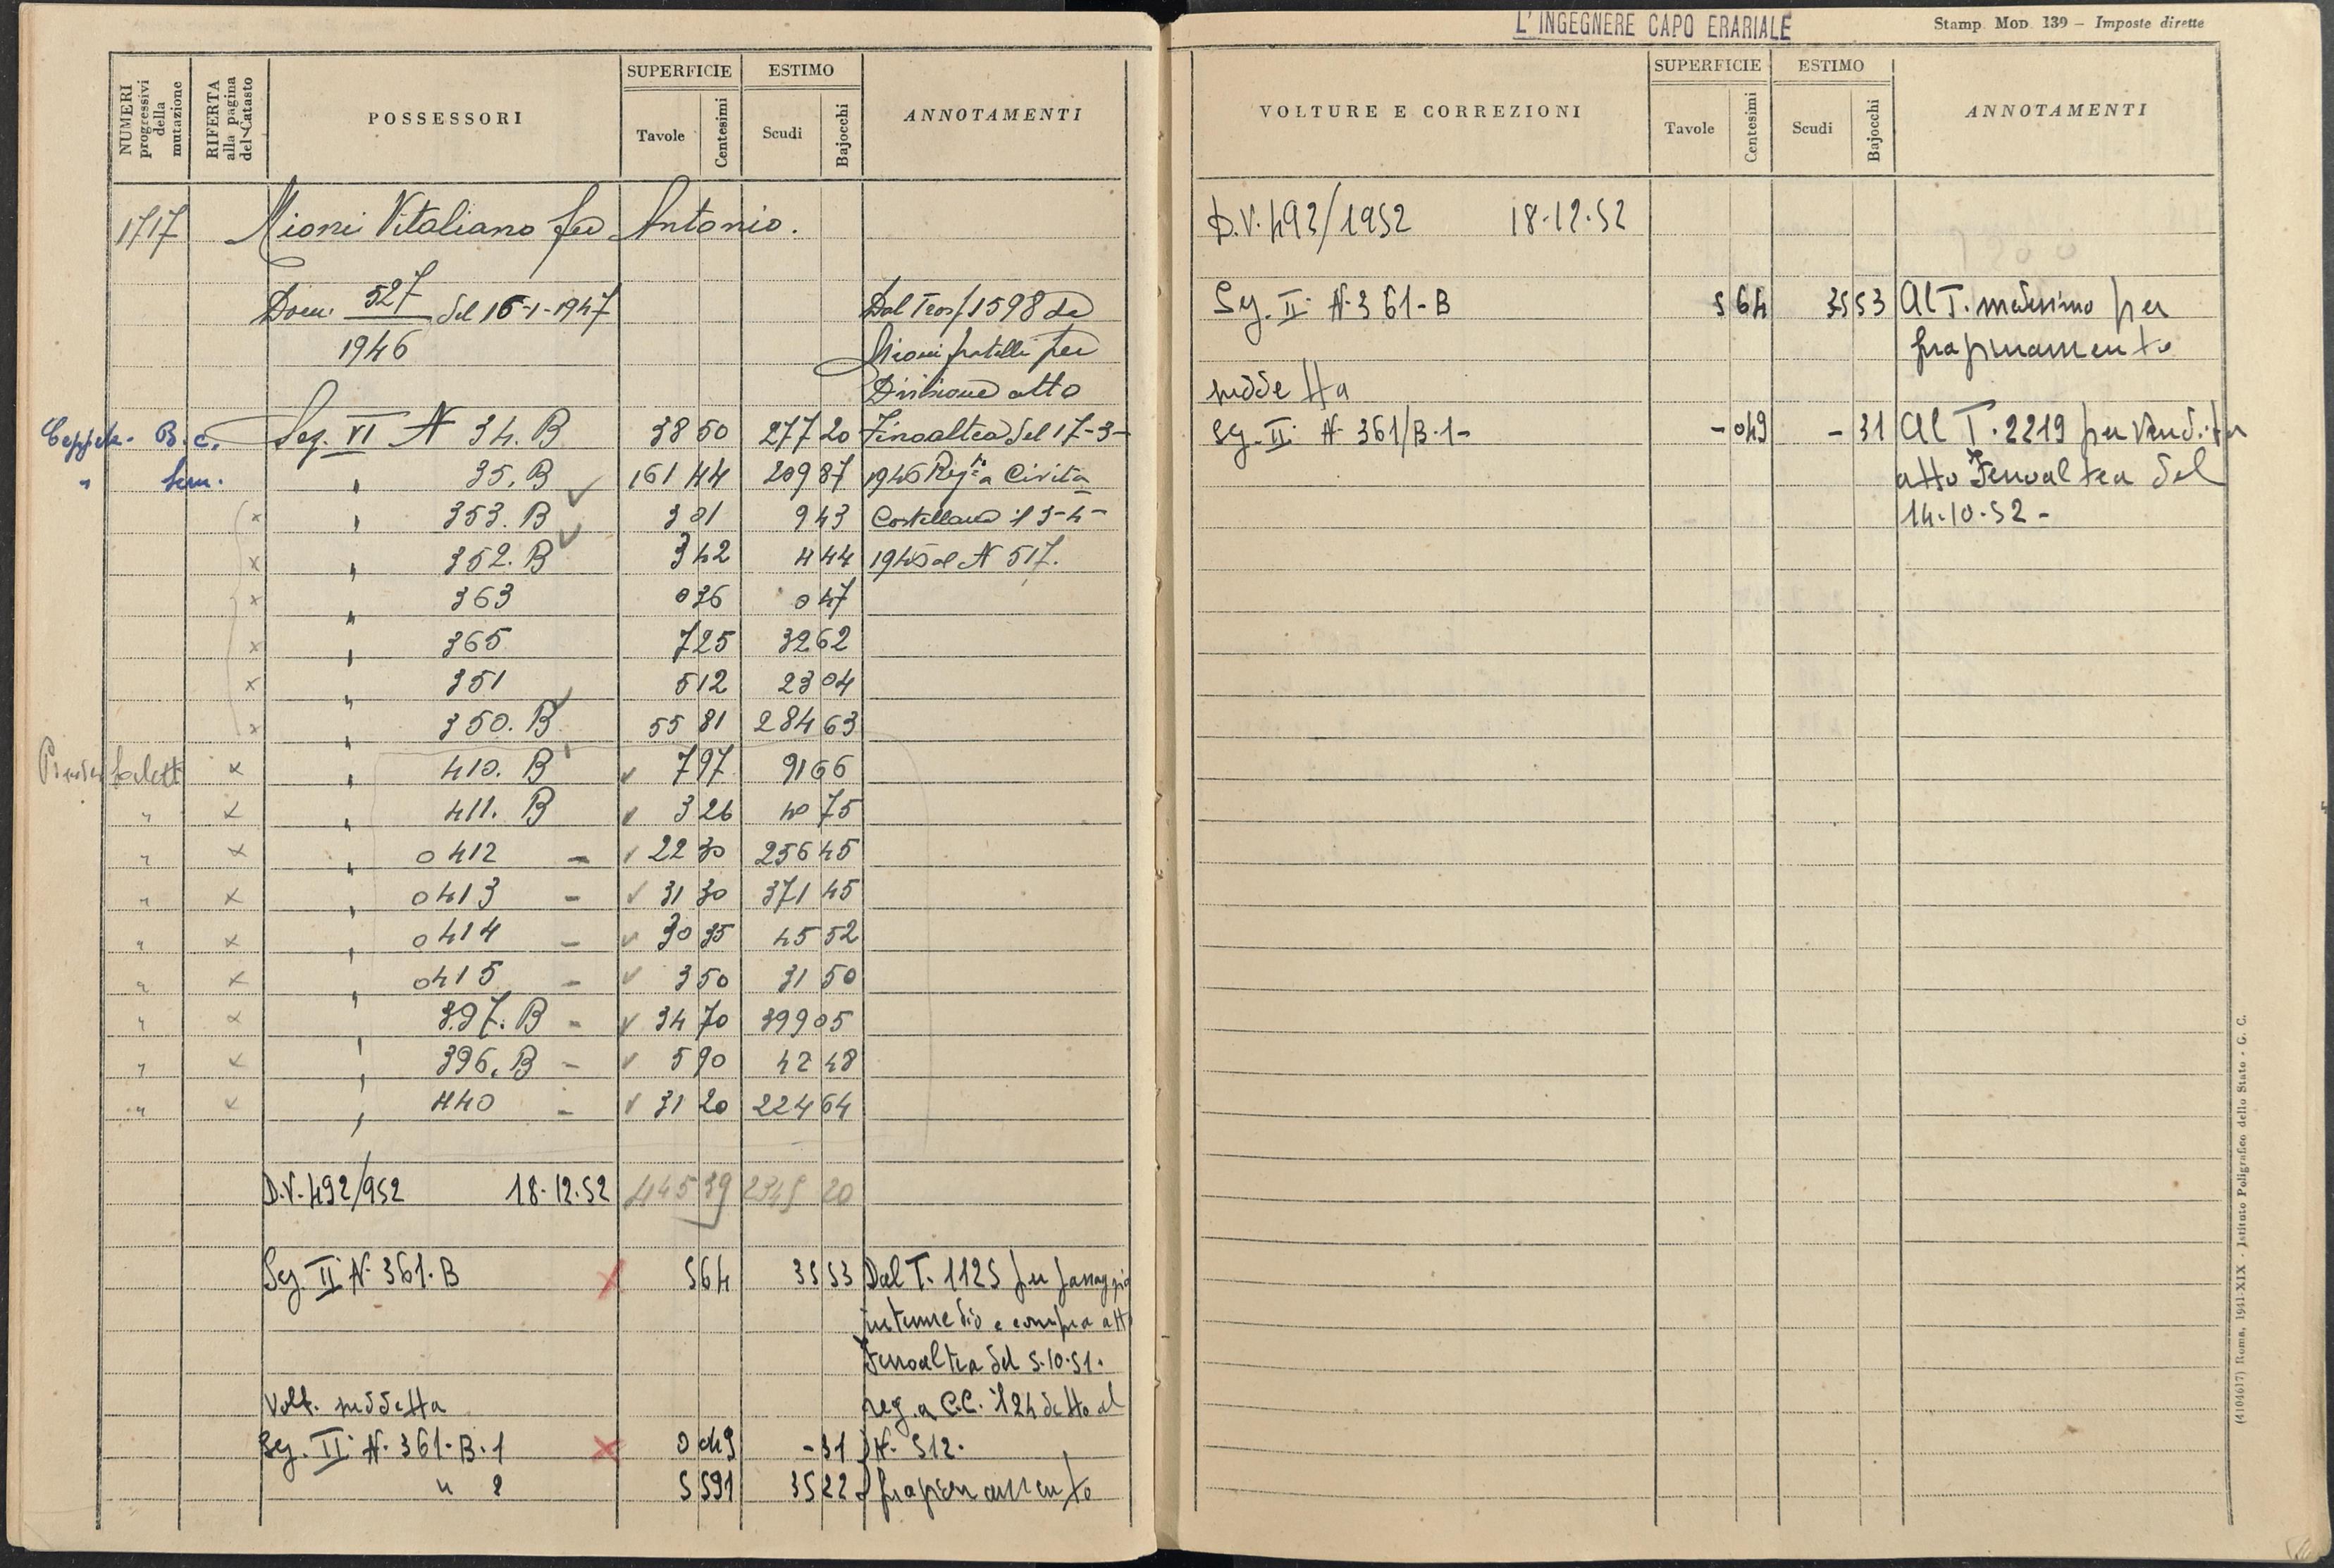 L'INGEGNERE CAPO ERARIALE
Stamp. Mod. 139 – Imposte dirette
NUMERI progressivi della mutazione
RIFERTA alla pagina del Catasto
POSSESSORI
SUPERFICIE
Tavole
Centesimi
ESTIMO
Scudi
Bajocchi
ANNOTAMENTI
1717 Mioni Vitaliano fu Antonio.
Dom. 527 del 16-1-1947 Dal Trasp 1598 da
1946 Mioni fratelli per
Divisione atto
B.c. Seg. VI N 34. B 38 50 277 20 Fenoaltea del 17-3-
" Sem. " 35. B 161 44 209 87 1946 Reg.to a Civita
x " 353. B 3 01 9 43 Castellana il 3-4-
x " 352. B 3 42 4 44 1946 al N 517.
x " 363 0 36 0 47
x " 365 7 25 32 62
x " 351 5 12 23 04
x " 350. B 55 81 284 63
x " 410. B 7 97 91 66
" x " 411. B 3 26 40 75
" x " 0412 – 22 30 256 45
" x " 0413 – 31 30 371 45
" x " 0414 – 30 35 45 52
" x " 0415 – 3 50 31 50
" x " 397. B – 34 70 399 05
" x " 396. B – 5 90 42 48
" x " 440 – 31 20 224 64
D.V. 492/952 18-12-52 445 39 2345 20
Seg. II N. 361. B 5 64 35 53 Dal T. 1125 per passaggio
intermedio e compra atto
Fenoaltea del 5-10-51.
Volt. suddetta reg. a C.C. il 24 detto al
Seg. II N. 361. B. 1 0 049 - 31 N. 512.
" 2 5 591 35 22 frazionamento
VOLTURE E CORREZIONI
SUPERFICIE
Tavole
Centesimi
ESTIMO
Scudi
Bajocchi
ANNOTAMENTI
D.V. 492/1952 18-12-52
Seg. II N. 361-B 5 64 35 53 Al T. medesimo per
frazionamento
suddetta
Seg. II N. 361/B.1- - 049 - 31 Al T. 2219 per vendita
atto Fenoaltea del
14-10-52 -
(4104617) Roma, 1941-XIX - Istituto Poligrafico dello Stato - G. C.